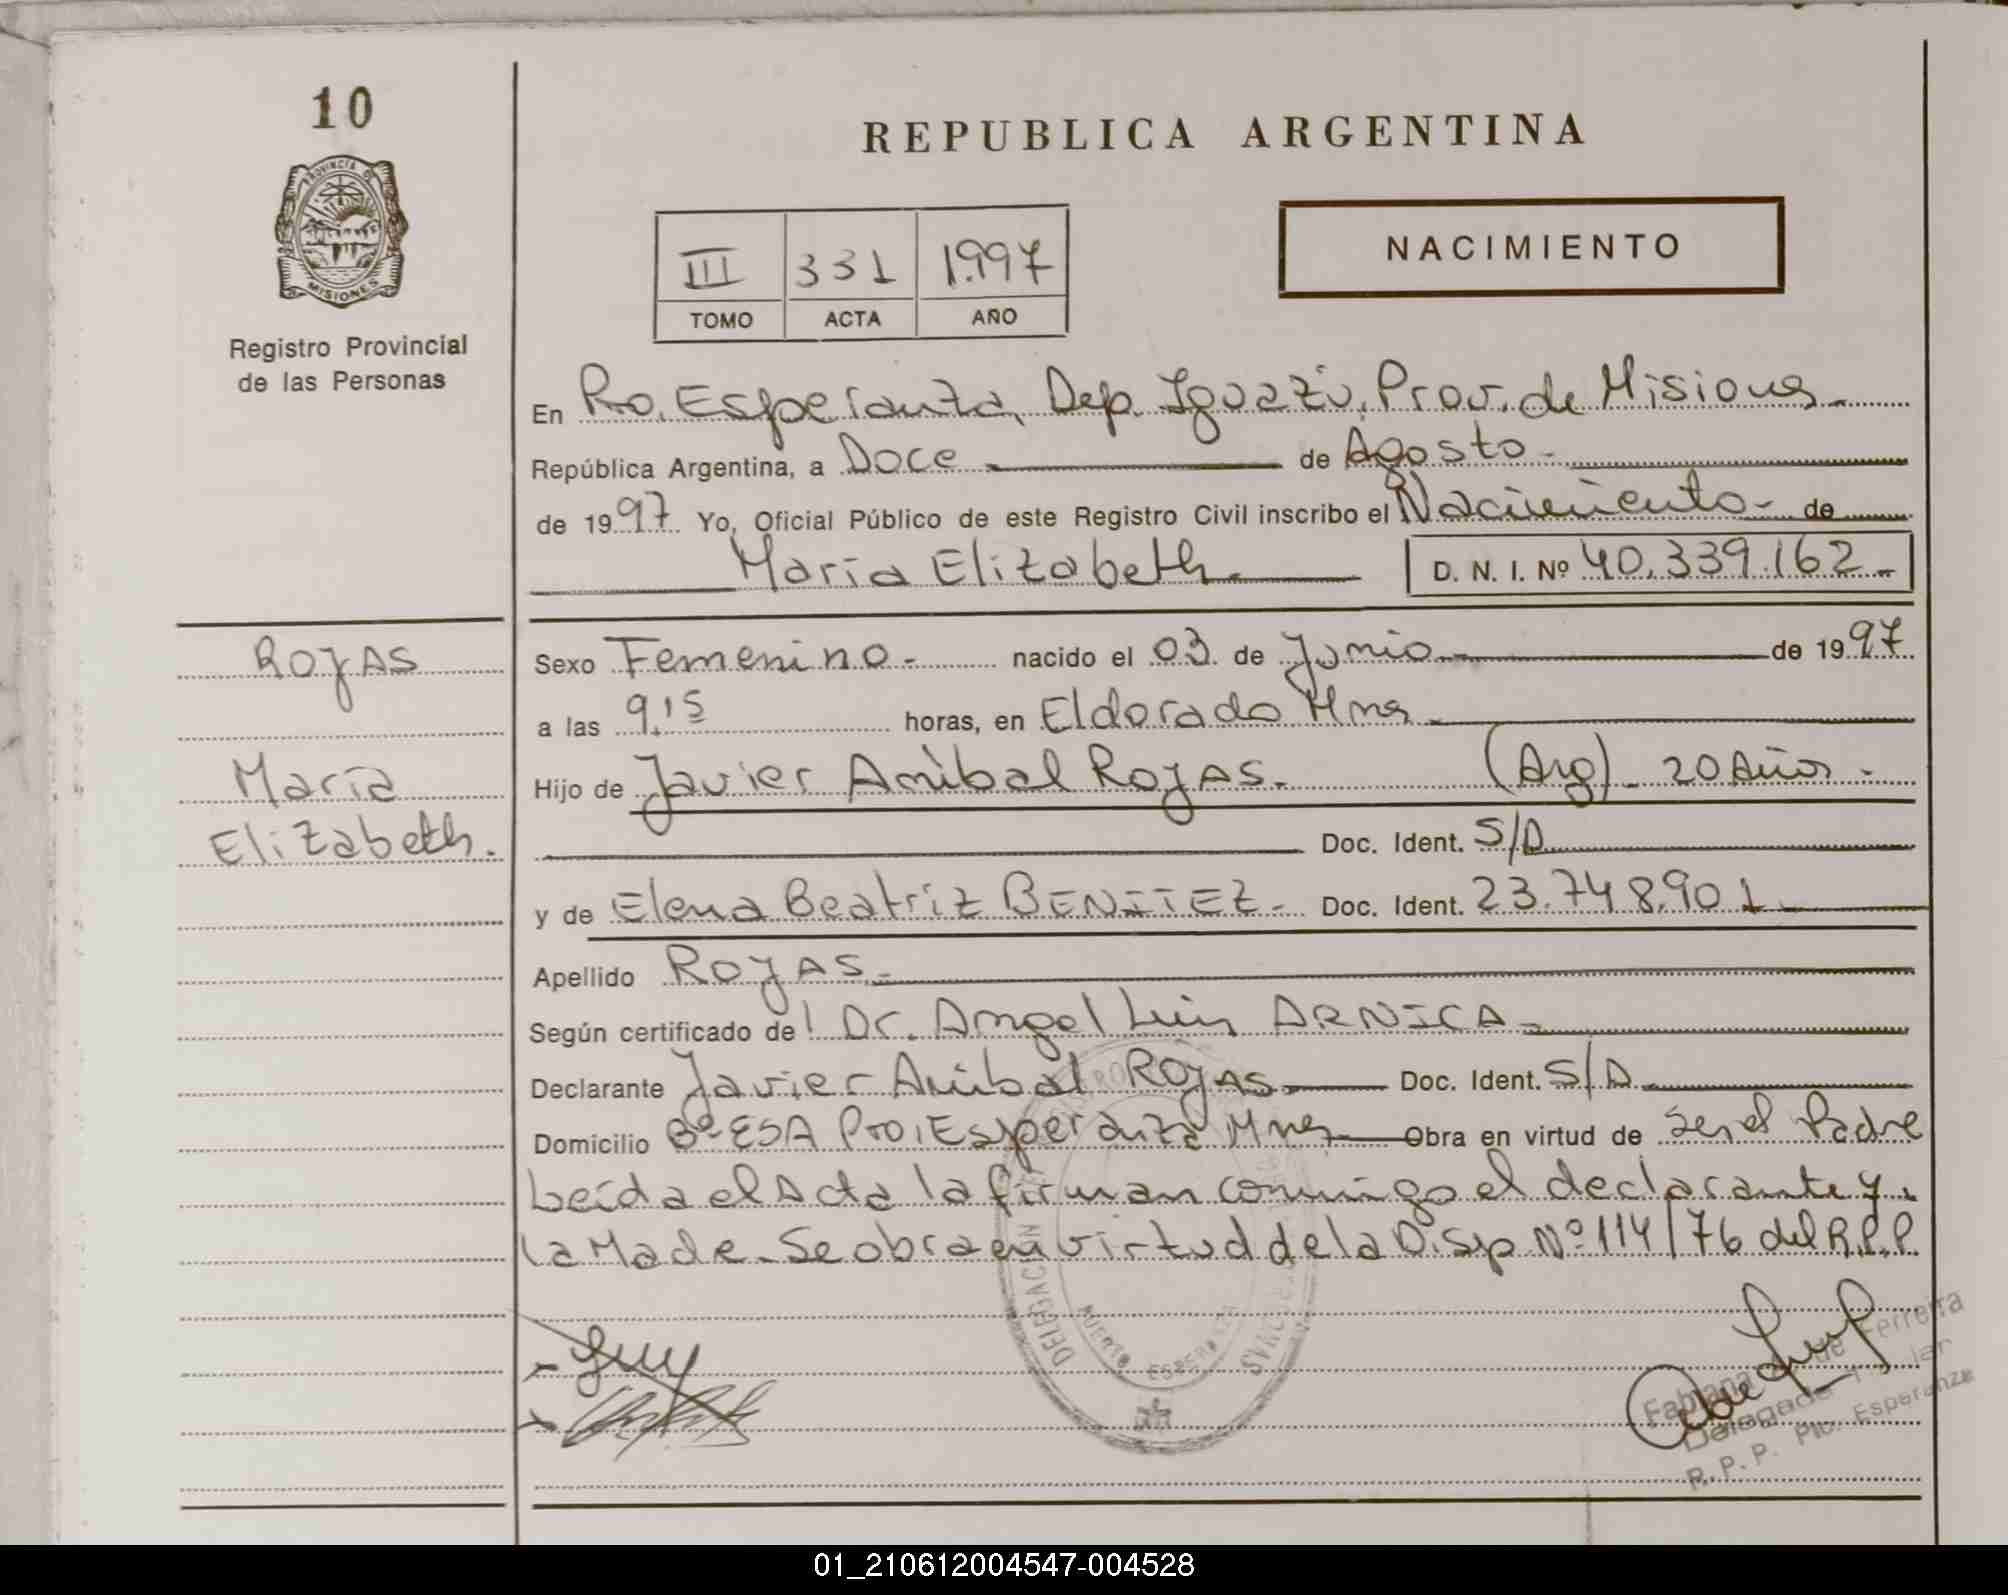 10
PROVINCIA DE
MISIONES
Registro Provincial
de las Personas
REPUBLICA ARGENTINA
III 331 1997
TOMO ACTA AÑO
NACIMIENTO
En Pto. Esperanza, Dep. Iguazú, Prov. de Misiones.
República Argentina, a Doce de Agosto
de 1997 Yo, Oficial Público de este Registro Civil inscribo el Nacimiento de
María Elizabeth. D. N. I. Nº 40.339.162
ROJAS
María
Elizabeth.
Sexo Femenino.- nacido el 03 de Junio de 1997
a las 9,15 horas, en Eldorado Mnes.
Hijo de Javier Anibal ROJAS. (Arg) 20 Años.
Doc. Ident. S/D
y de Elena Beatriz BENITEZ Doc. Ident. 23.748.901
Apellido ROJAS.
Según certificado de Dr. Angel Luis ARNICA
Declarante Javier Anibal ROJAS Doc. Ident. S/D
Domicilio Bº ESA Pto. Esperanza Mnes Obra en virtud de ser el Padre
Leída el Acta la firman conmigo el declarante y
la Made. Se obra en virtud de la Disp. Nº 114/76 del R.P.P.
DELEGACION
PUERTO ESPERANZA
Fabiana Ferreira
Delegada Titular
R. P. P. Pto. Esperanza
01_210612004547-004528